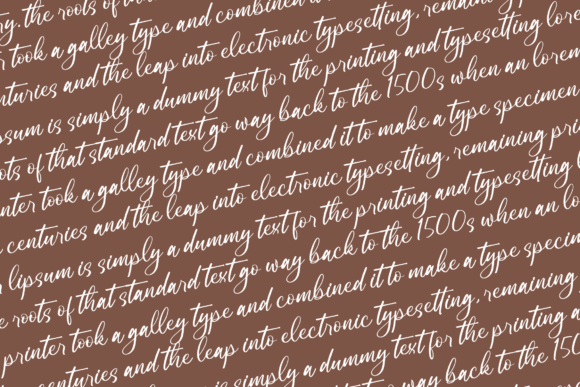 ry, the roots of
r took a galley type and combined it
nturies and the leap into electronic typesetting, remaining
ipsum is simply a dummy text for the printing and typesetting lore
oots of that standard text go way back to the 1500s when an lorem
nter took a galley type and combined it to make a type specimen
centuries and the leap into electronic typesetting, remaining pri
r lipsum is simply a dummy text for the printing and typesetting
e roots of that standard text go way back to the 1500s when an lo
printer took a galley type and combined it to make a type specim
centuries and the leap into electronic typesetting, remaining
is simply a dummy text for the printing a
way back to the 150